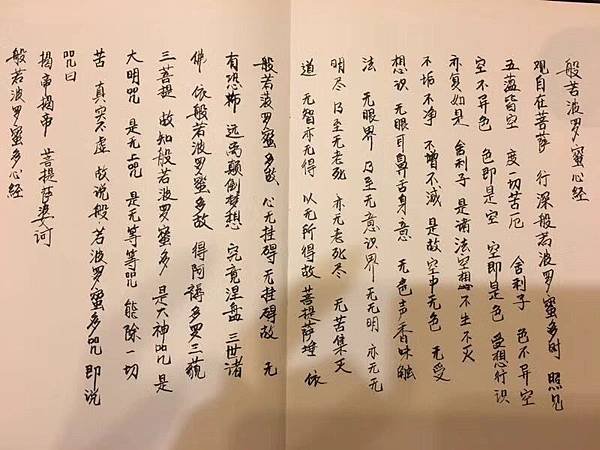 般若波罗蜜心经
观自在菩萨 行深般若波罗蜜多时 照见
五蕴皆空 度一切苦厄 舍利子 色不异空
空不异色 色即是空 空即是色 受想行识
亦复如是 舍利子 是诸法空想 不生不灭
不垢不净 不增不减 是故空中无色 无受
想识 无眼耳鼻舌身意 无色声香味触
法 无眼界 乃至无意识界 无无明 亦无无
明尽 乃至无老死 亦无老死尽 无苦集灭
道 无智亦无得 以无所得故 菩提萨埵 依
般若波罗蜜多故 心无挂碍 无挂碍故 无
有恐怖 远离颠倒梦想 究竟涅盘 三世诸
佛 依般若波罗蜜多故 得阿耨多罗三藐
三菩提 故知般若波罗蜜多 是大神咒 是
大明咒 是无上咒 是无等等咒 能除一切
苦 真实不虚 故说般若波罗蜜多咒 即说
咒曰
揭帝揭帝 菩提萨婆诃
般若波罗蜜多心经